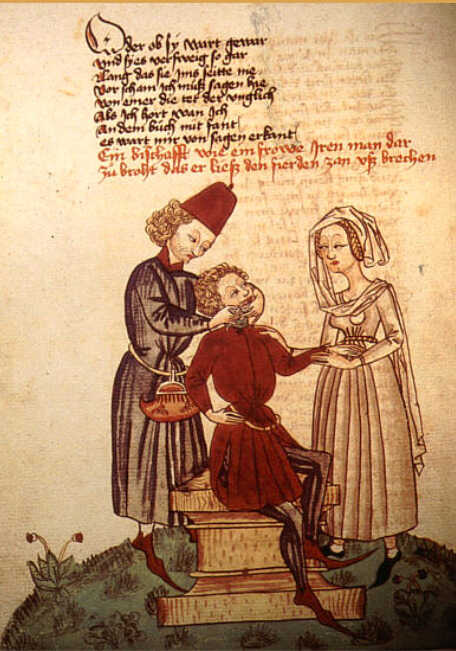 Oder ob sy wart gewar
vnd sy es verschweig so gar
lang das sie Ims seitte me
vor scham Ich muß sagen hie
von einer die tet der vnglich
Als Ich hort wan Ich
An dem buch mit fant
es wart mir von sagen erkant
Ein bischafft wie ein frowe Iren man dar
zů broht das er ließ den fierden zan vß brechen